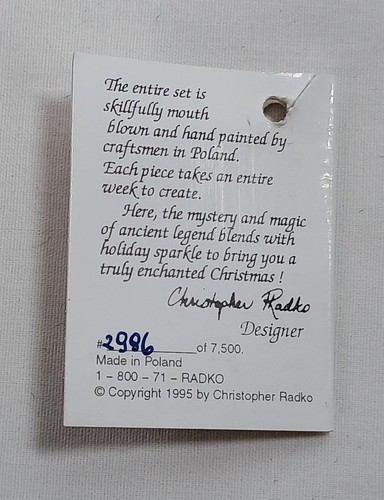 The entire set is
skillfully mouth
blown and hand painted by
craftsmen in Poland.
Each piece takes an entire
week to create.
Here, the mystery and magic
of ancient legend blends with
holiday sparkle to bring you a
truly enchanted Christmas !
Christopher Radko
Designer
#2986 of 7,500.
Made in Poland
1 – 800 – 71 – RADKO
© Copyright 1995 by Christopher Radko